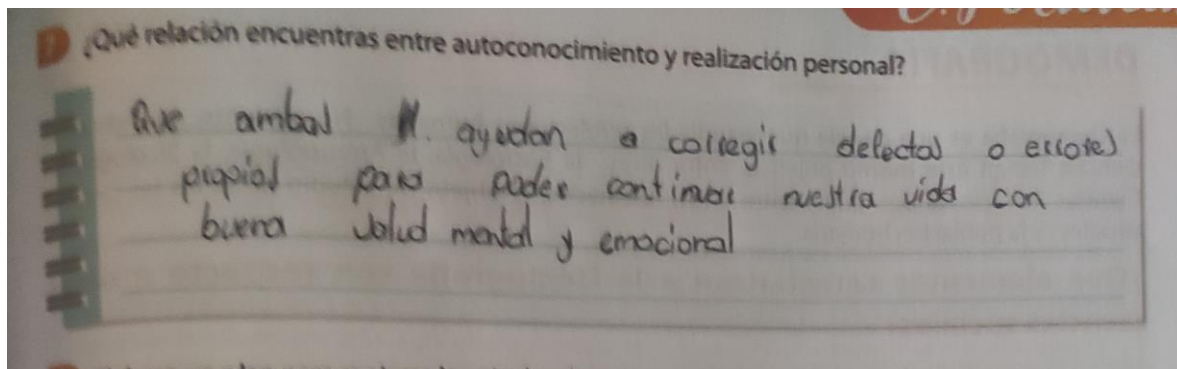 ¿Qué relación encuentras entre autoconocimiento y realización personal?
Que ambas ayudan a corregir defectos o errores
propios para poder continuar nuestra vida con
buena salud mental y emocional